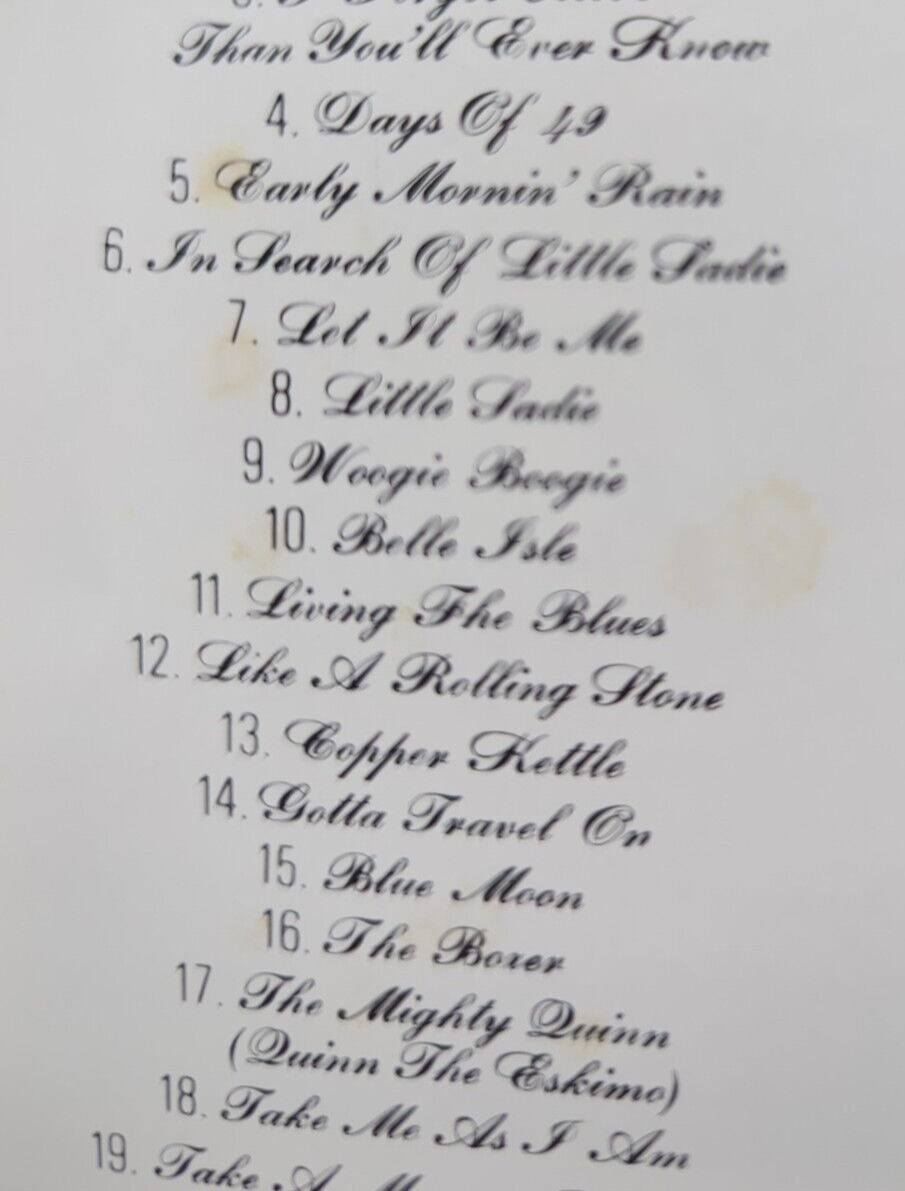 Than You'll Ever Know
4. Days Of 49
5. Early Mornin' Rain
6. In Search Of Little Sadie
7. Let It Be Me
8. Little Sadie
9. Woogie Boogie
10. Belle Isle
11. Living The Blues
12. Like A Rolling Stone
13. Copper Kettle
14. Gotta Travel On
15. Blue Moon
16. The Boxer
17. The Mighty Quinn
(Quinn The Eskimo)
18. Take Me As I Am
19. Take A